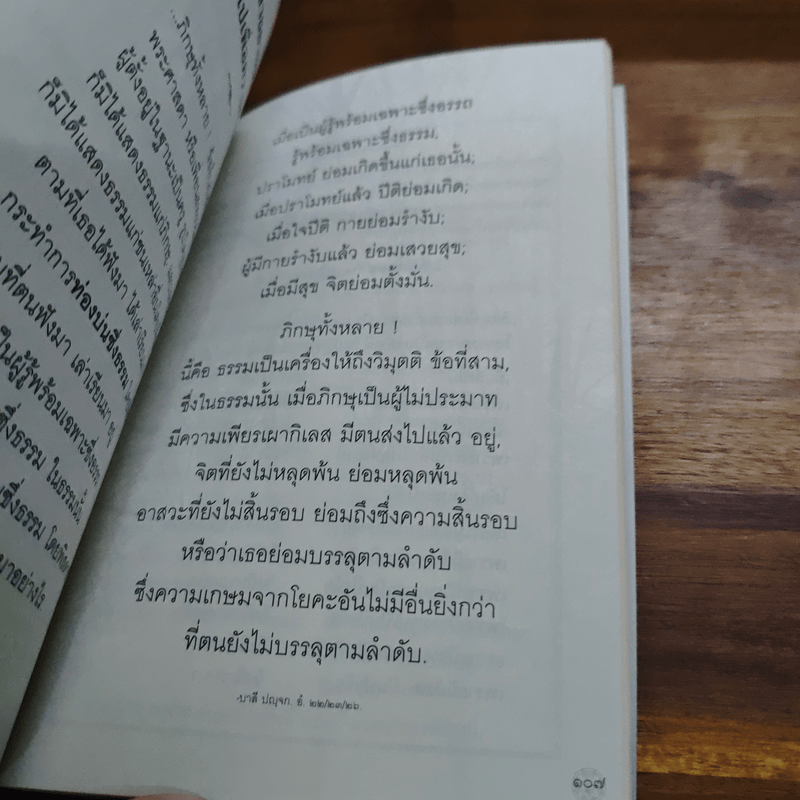 ...ภิกษุทั้งหลาย !
พระศาสดา หรือเพื่อน
ผู้ตั้งอยู่ในฐานะเป็นครู
ก็มิได้แสดงธรรมแก่ภิกษุ
ก็มิได้แสดงธรรมแก่ชนเหล่าอื่น
ตามที่เธอได้ฟังมา ได้เล่าเรียน
กระทำการท่องบ่นซึ่งธรรม
ที่ตนฟังมา เล่าเรียนมา อยู่
ในผู้รู้พร้อมเฉพาะซึ่งอรรถ
ซึ่งธรรม ในธรรมนั้น
ซึ่งธรรม
มาอย่างไร
เมื่อเป็นผู้รู้พร้อมเฉพาะซึ่งอรรถ
รู้พร้อมเฉพาะซึ่งธรรม,
ปราโมทย์ ย่อมเกิดขึ้นแก่เธอนั้น;
เมื่อปราโมทย์แล้ว ปีติย่อมเกิด;
เมื่อใจปีติ กายย่อมรำงับ;
ผู้มีกายรำงับแล้ว ย่อมเสวยสุข;
เมื่อมีสุข จิตย่อมตั้งมั่น.
ภิกษุทั้งหลาย !
นี้คือ ธรรมเป็นเครื่องให้ถึงวิมุตติ ข้อที่สาม,
ซึ่งในธรรมนั้น เมื่อภิกษุเป็นผู้ไม่ประมาท
มีความเพียรเผากิเลส มีตนส่งไปแล้ว อยู่,
จิตที่ยังไม่หลุดพ้น ย่อมหลุดพ้น
อาสวะที่ยังไม่สิ้นรอบ ย่อมถึงซึ่งความสิ้นรอบ
หรือว่าเธอย่อมบรรลุตามลำดับ
ซึ่งความเกษมจากโยคะอันไม่มีอื่นยิ่งกว่า
ที่ตนยังไม่บรรลุตามลำดับ.
-บาลี ปญฺจก. อํ. ๒๒/๒๓/๒๖.
๑๐๗